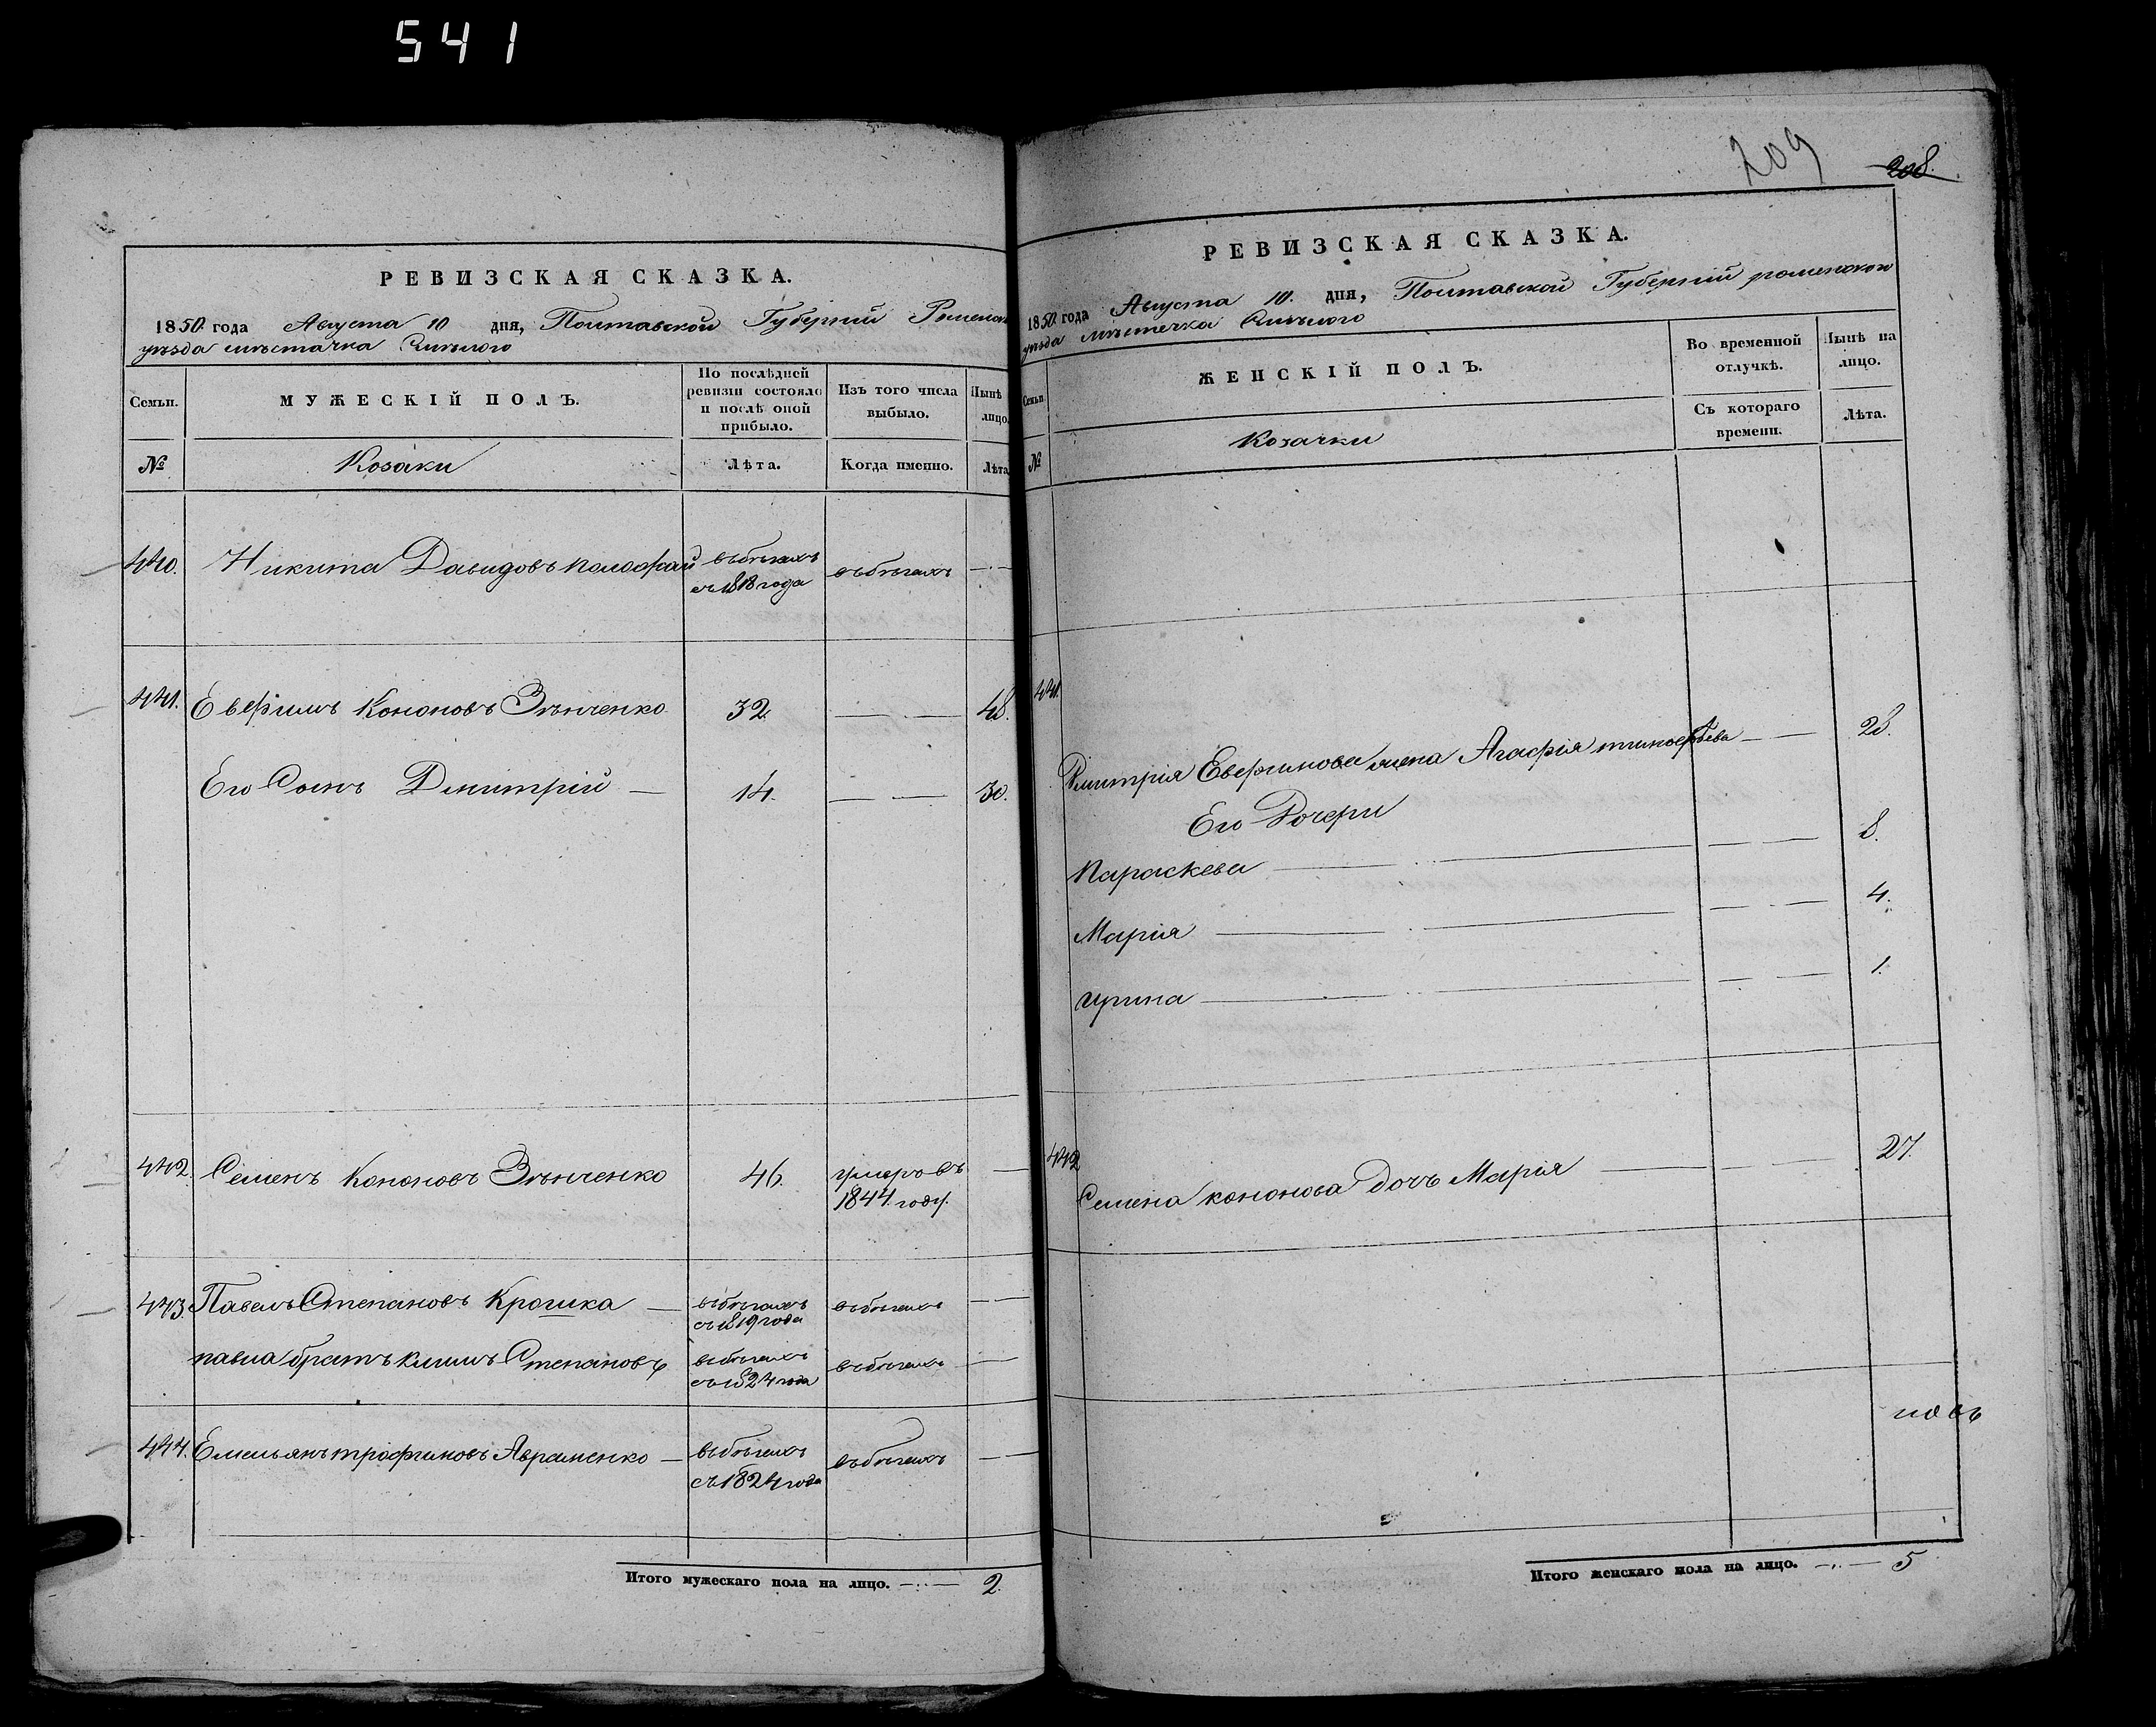 541
РЕВИЗСКАЯ СКАЗКА.
1850 года Августа 10 дня, Полтавской Губерніи Роменск
уѣзда мѣстачка Смѣлого
Семьи.
МУЖЕСКІЙ ПОЛЪ.
По послѣдней ревизіи состояло и послѣ оной прибыло.
Изъ того числа выбыло.
Нынѣ лицо.
№
Козаки
Лѣта.
Когда именно.
Лѣта
440. Никита Давидовъ въбѣгахъ въбѣгахъ — —
съ 1818 года
441. Евфимъ Кононовъ Зѣнченко 32. — — 48.
Его Сынъ Дмитрій — 14. — — 30.
442. Семенъ Кононовъ Зѣнченко 46. умеръ въ —
1844. году.
443. Павелъ Степановъ Крошка — въбѣгахъ въбѣгахъ — —
съ 1819 года
павла братъ Климъ Степановъ въбѣгахъ въбѣгахъ —
съ 1824 года
444. Емельянъ трофимовъ Авраменко — въбѣгахъ въбѣгахъ — —
съ 1824 года
Итого мужескаго пола на лицо. — 2.
209
208.
РЕВИЗСКАЯ СКАЗКА.
1850 года Августа 10. дня, Полтавской Губерніи роменскои
уѣзда мѣстечка Смѣлого
Семьи.
ЖЕНСКІЙ ПОЛЪ.
Во временной отлучкѣ.
Нынѣ на лицо.
№
Козачки
Съ котораго времени.
Лѣта.
441.
Дмитрія Евфимова жена Агафія тимофѣева — — 28.
Его Дочери
Параскева — — 8.
Марія — — 4.
ирина — — 1.
442
Семена кононова дочъ Марія — — 27.
Итого женскаго пола на лицо. — 5